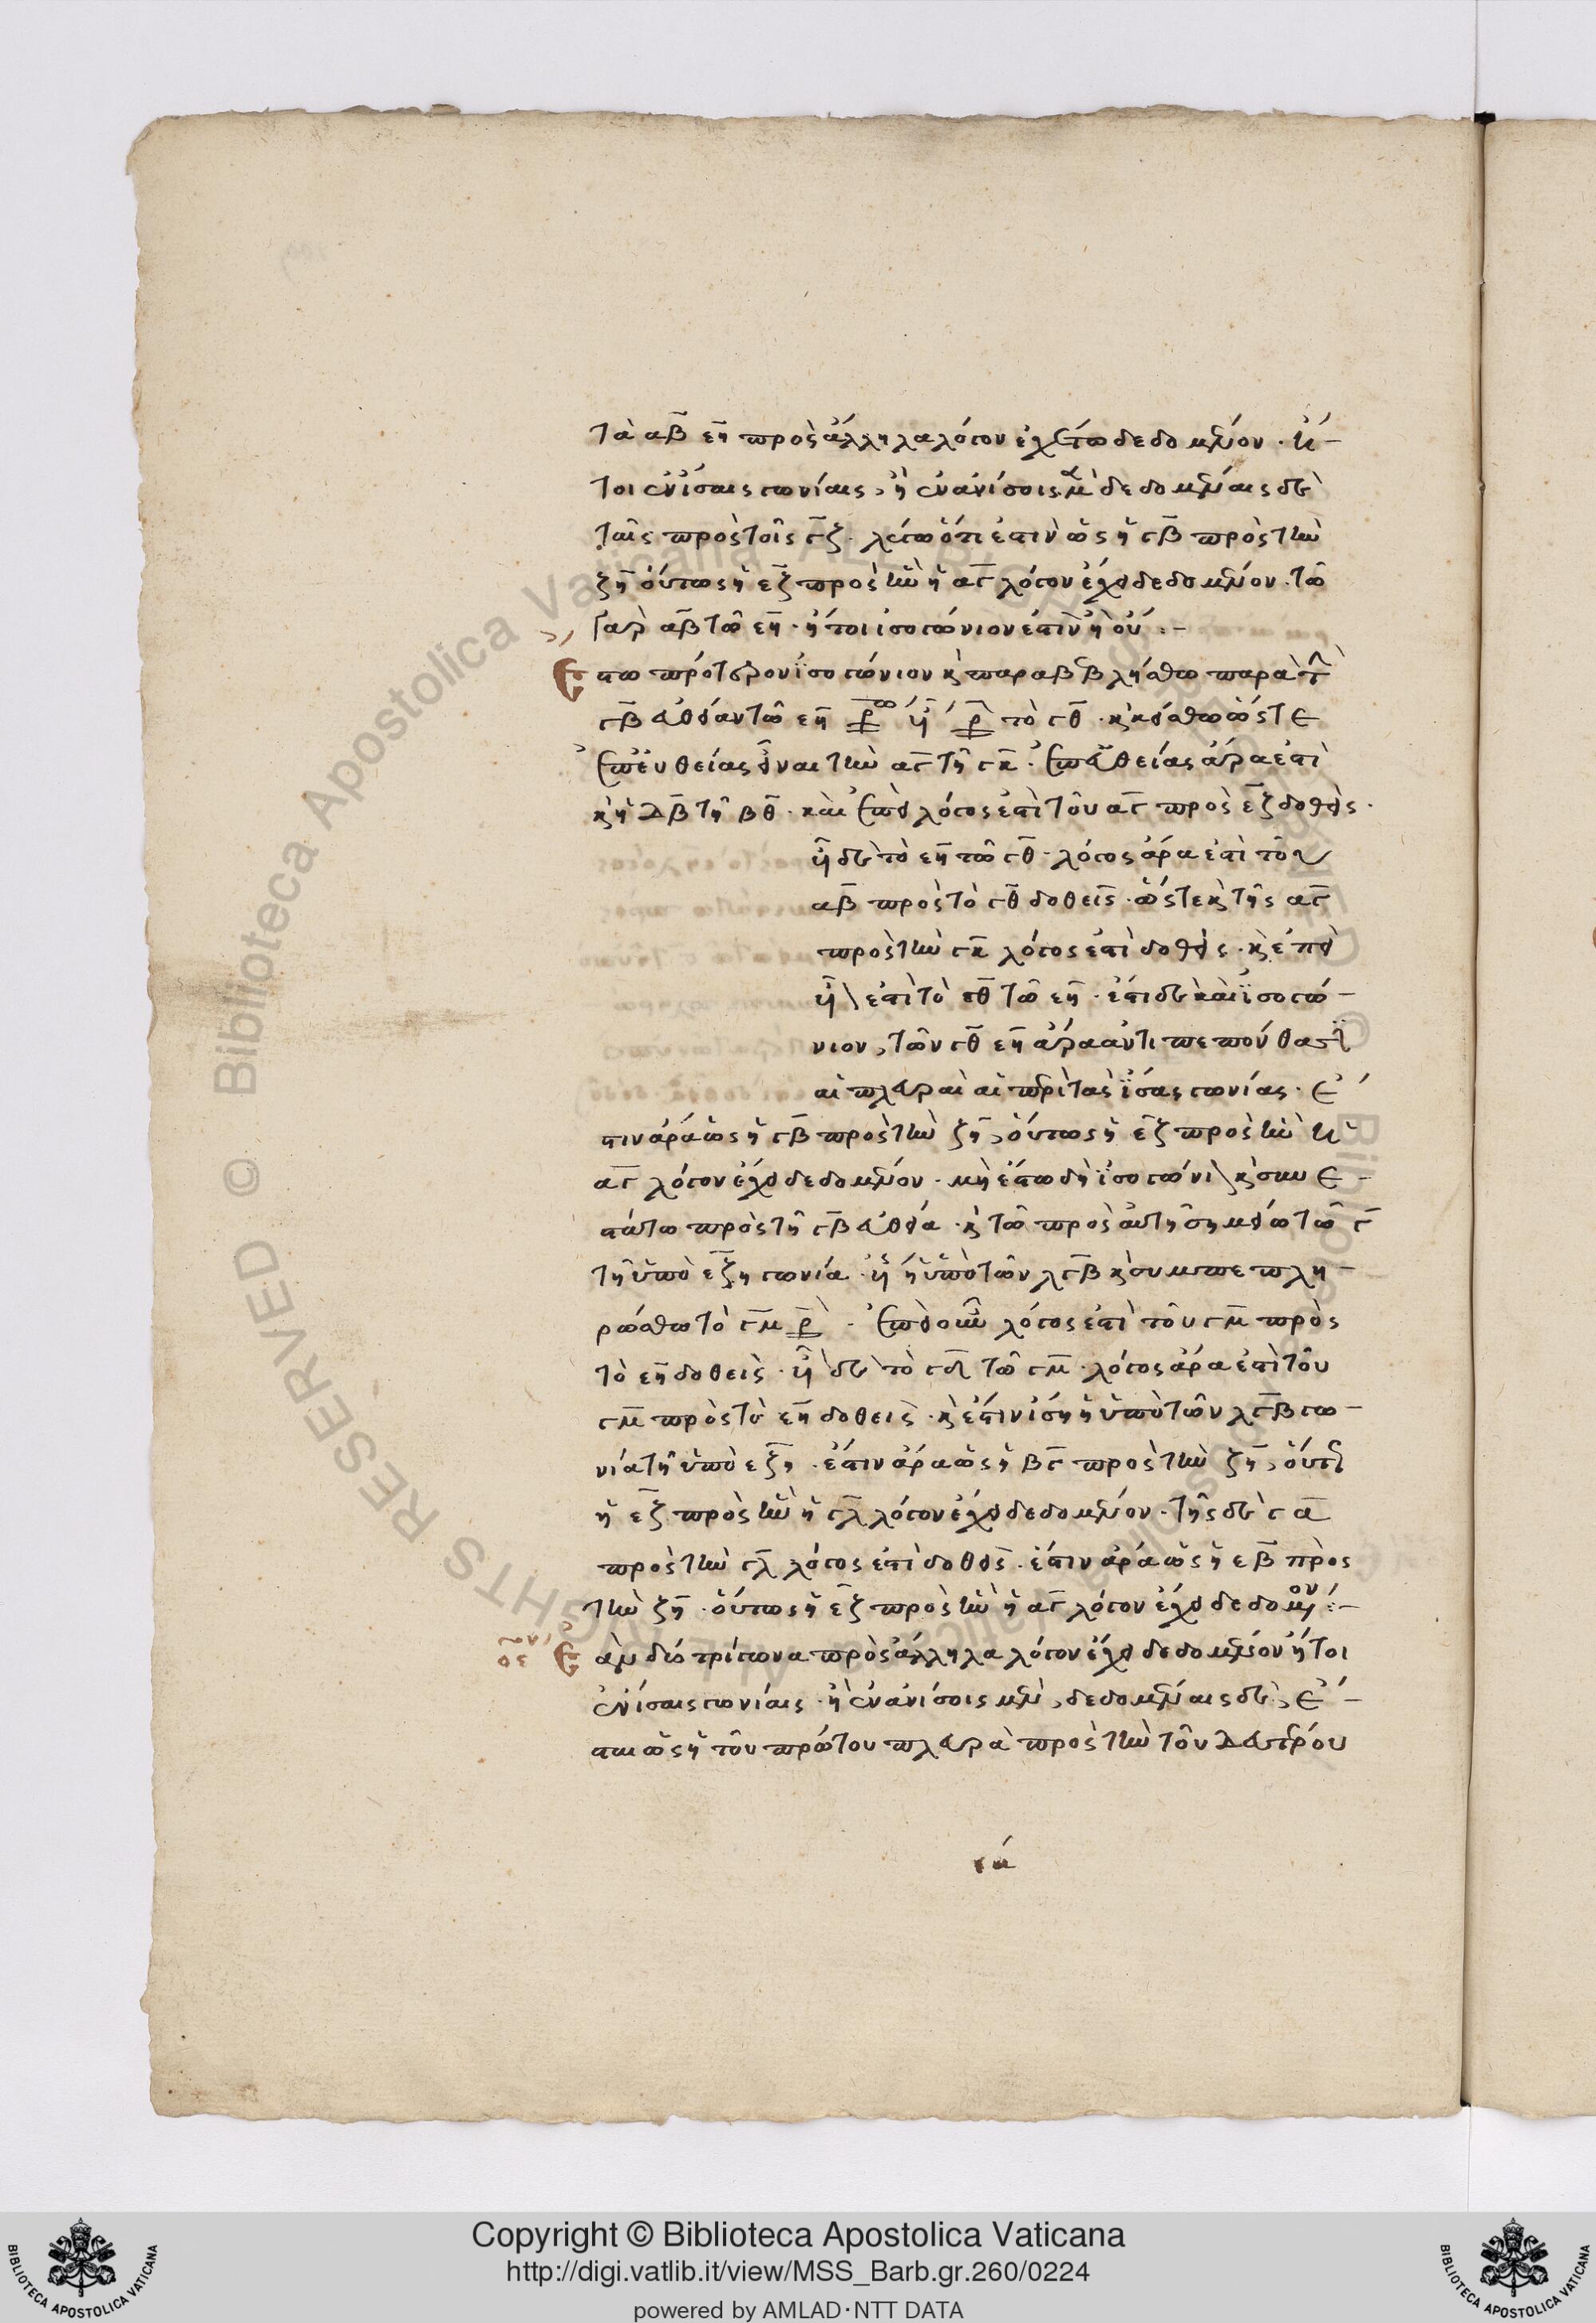 τὰ αβ εη πρὸς ἄλληλα λόγον ἐχέτω δεδομένον · ἤ-
τοι ἐν ἴσαις γωνίαις, ἢ ἐν ἀνίσοις μὲν δεδομέναις δὲ
ταῖς πρὸς τοῖς γζ · λέγω ὅτι ἐστὶν ὡς ἡ γβ πρὸς τὴν
ζη οὕτως ἡ εζ πρὸς ἣν ἡ αγ λόγον ἔχει δεδομένον · τὸ
γὰρ αβ τῶ εη · ἤτοι ἰσογώνιόν ἐστιν ἢ οὔ :-
Εστω πρότερον ἰσογώνιον κὶ παραβεβλήσθω παρὰ τὴν
γβ εὐθεῖαν τῶ εη ἴσον τὸ γθ · κὶ κείσθω ὥστε
ἐπευθείας εἶναι τὴν αγ τῆ γκ · ἐπευθείας ἄρα ἐστὶ
κὶ ἡ δβ τῆ βθ · καὶ ἐπεὶ λόγος ἐστὶ τοῦ αγ πρὸς εζ δοθείς ·
ἴσον δὲ τὸ εη τῶ γθ · λόγος ἄρα ἐστὶ τοῦ
αβ πρὸς τὸ γθ δοθείς · ὥστε κὶ τῆς αγ
πρὸς τὴν γκ λόγος ἐστὶ δοθείς · κὶ ἐπεὶ
ἴσον ἐστὶ τὸ γθ τῶ εη · ἔστι δὲ καὶ ἰσογώ-
νιον, τῶν γθ εη ἄρα ἀντιπεπόνθασιν
αἱ πλευραὶ αἱ περὶ τὰς ἴσας γωνίας · ἔ-
στιν ἄρα ὡς ἡ γβ πρὸς τὴν ζη, οὕτως ἡ εζ πρὸς ἣν ἡ
αγ λόγον ἔχει δεδομένον · μὴ ἔστω δὴ ἰσογώνιον κὶ συνε-
στάτω πρὸς τῆ γβ εὐθεία · κὶ τῶ πρὸς αὐτῆ σημείω τῶ γ
τῆ ὑπὸ εζη γωνία · ἴση ἡ ὑπὸ τῶν λγβ κὶ συμπεπλη-
ρώσθω τὸ γμ · ἐπεὶ οὖν λόγος ἐστὶ τοῦ γμ πρὸς
τὸ εη δοθείς · ἴσον δὲ τὸ γδ τῶ γμ · λόγος ἄρα ἐστὶ τοῦ
γμ πρὸς τὸ εη δοθείς · κὶ ἔστιν ἴση ἡ ὑπὸ τῶν λγβ γω-
νία τῆ ὑπὸ εζη · ἔστιν ἄρα ὡς ἡ βγ πρὸς τὴν ζη, οὕτως
ἡ εζ πρὸς ἣν ἡ γλ λόγον ἔχει δεδομένον · τῆς δὲ γα
πρὸς τὴν γλ λόγος ἐστὶ δοθείς · ἔστιν ἄρα ὡς ἡ εβ πρὸς
τὴν ζη · οὕτως ἡ εζ πρὸς ἣν ἡ αγ λόγον ἔχει δεδομένον :-
οε Εὰν δύο τρίγωνα πρὸς ἄλληλα λόγον ἔχει δεδομένον ἤτοι
ἐν ἴσαις γωνίαις · ἢ ἐν ἀνίσοις μὲν, δεδομέναις δὲ, ἔ-
σται ὡς ἡ τοῦ πρώτου πλευρὰ πρὸς τὴν τοῦ δευτέρου